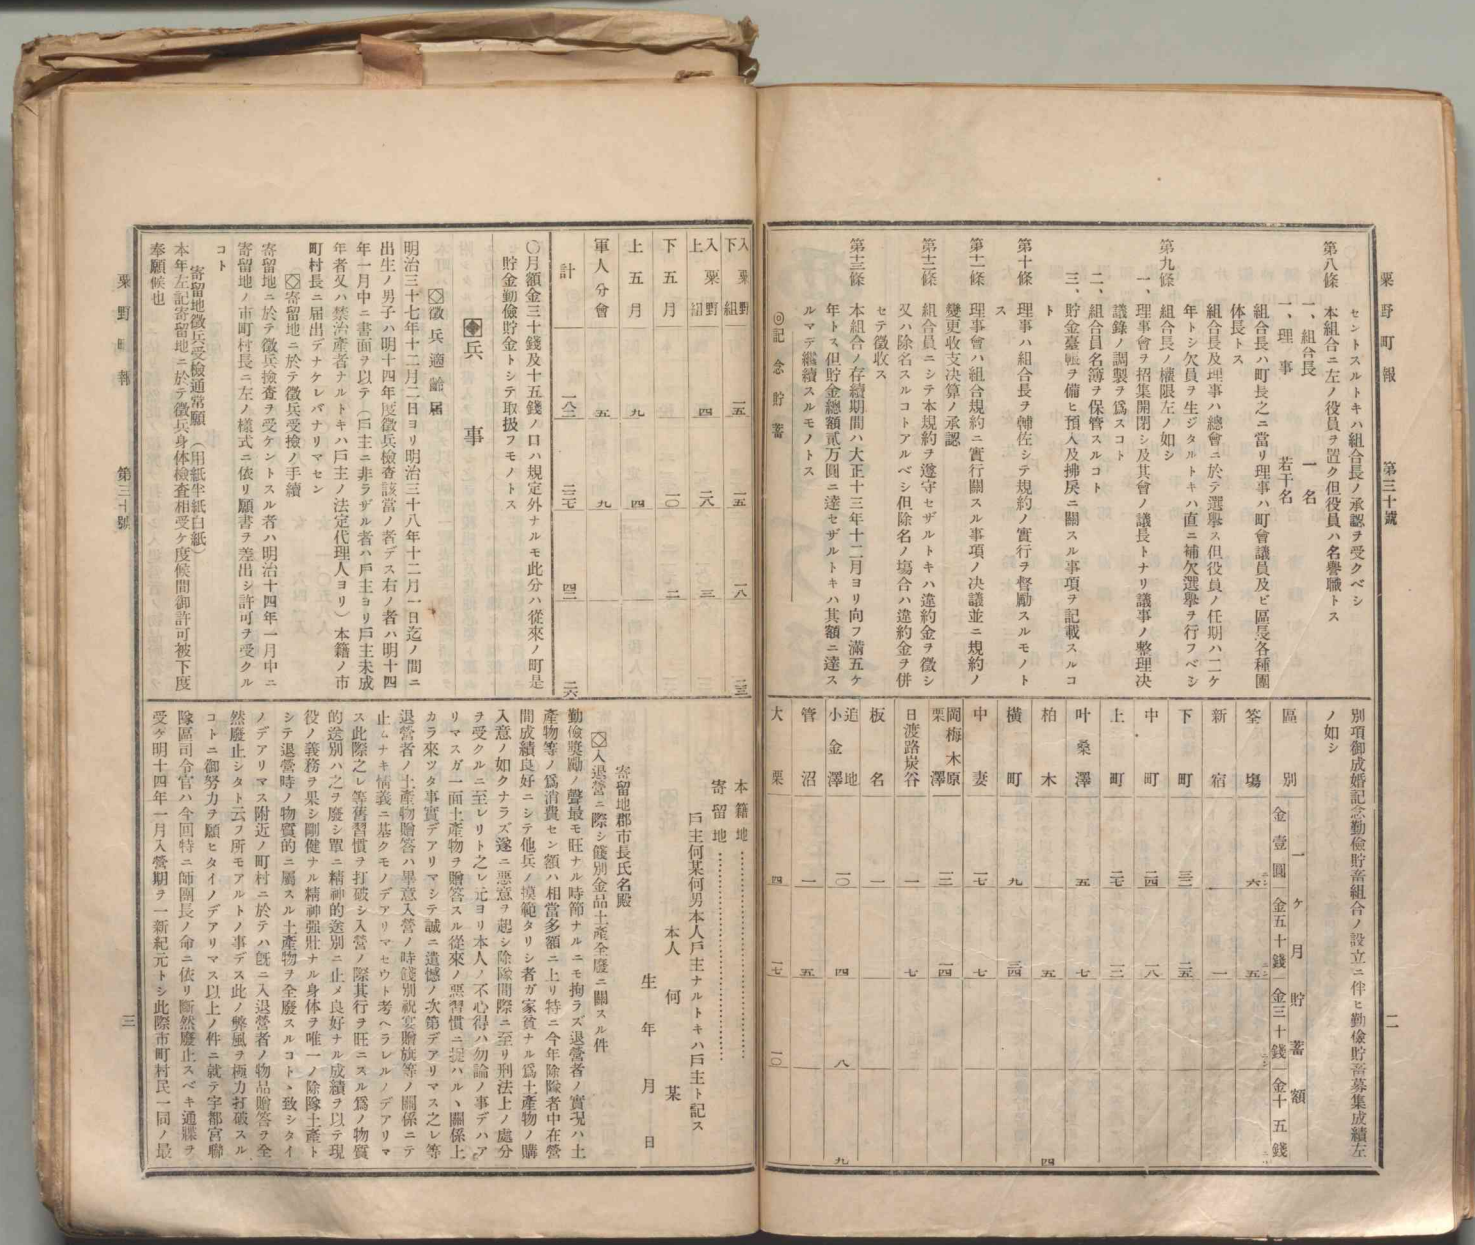 粟野町報　第三十號　二
セントスルトキハ組合長ノ承認ヲ受クベシ
第八條　本組合ニ左ノ役員ヲ置ク但役員ハ名譽職トス
一、組合長　一名
一、理事　若干名
組合長ハ町長之ニ當リ理事ハ町會議員及ビ區長各種團
体長トス
組合長及理事ハ總會ニ於テ選擧ス但役員ノ任期ハ二ケ
年トシ欠員ヲ生ジタルトキハ直ニ補欠選擧ヲ行フベシ
第九條　組合長ノ權限左ノ如シ
一、理事會ヲ招集開閉シ及其會ノ議長トナリ議事ノ整理決
議錄ノ調製ヲ爲スコト
二、組合員名簿ヲ保管スルコト
三、貯金臺帳ヲ備ヒ預入及拂戾ニ關スル事項ヲ記載スルコ
ト
第十條　理事ハ組合長ヲ輔佐シテ規約ノ實行ヲ督勵スルモノト
ス
第十一條　理事會ハ組合規約ニ實行關スル事項ノ决議並ニ規約ノ
變更收支決算ノ承認
第十二條　組合員ニシテ本規約ヲ遵守セザルトキハ違約金ヲ徵シ
又ハ除名スルコトアルベシ但除名ノ塲合ハ違約金ヲ併
セテ徵收ス
第十三條　本組合ノ存續期間ハ大正十三年十二月ヨリ向フ滿五ケ
年トス但貯金總額貳万圓ニ達セザルトキハ其額ニ達ス
ルマデ繼續スルモノトス
◎記念貯蓄
別項御成婚記念勤儉貯畜組合ノ設立ニ伴ヒ勤儉貯畜募集成績左
ノ如シ
區別　一ケ月貯蓄額
金壹圓　金五十錢　金三十錢　金十五錢
筌塲　六　五
新宿　一
下町　三二　二五
中町　二四　一八
上町　二七　一二
叶桑澤　五　七
柏木　五　四
横町　九　三四
中妻　一七　七
岡梅木原
栗澤　一三　一四
日渡路炭谷　一　七
板名　一
追地
小金澤　一〇　四　八　九
菅沼　一　五
大栗　四　一七　一〇
入粟野
下組　一五　一五　一八　二三
入粟野
上組　四　二八　三
下五月　一〇　二
上五月　九　四
軍人分會　五　九
計　一八二　二三七　四二　二六
〇月額金三十錢及十五錢ノ口ハ規定外ナルモ此分ハ從來ノ町是
貯金勤儉貯金トシテ取扱フモノトス
兵事
◇徵兵適齡屆
明治三十七年十二月二日ヨリ明治三十八年十二月一日迄ノ間ニ
出生ノ男子ハ明十四年度徵兵檢査該當ノ者デス右ノ者ハ明十四
年一月中ニ書面ヲ以テ（戶主ニ非ラザル者ハ戶主ヨリ戶主未成
年者又ハ禁治產者ナルトキハ戶主ノ法定代理人ヨリ）本籍ノ市
町村長ニ屆出デナケレバナリマセン
◇寄留地ニ於テ徵兵受檢ノ手續
寄留地ニ於テ徵兵檢査ヲ受ケントスル者ハ明治十四年一月中ニ
寄留地ノ市町村長ニ左ノ樣式ニ依リ願書ヲ差出シ許可ヲ受クル
コト
寄留地徵兵受檢通常願（用紙半紙白紙）
本年左記寄留地ニ於テ徵兵身体檢査相受ケ度候間御許可被下度
奉願候也
本籍地…………
寄留地…………
戶主何某何男本人戶主ナルトキハ戶主ト記ス
本人　何某
生年月日
寄留地郡市長氏名殿
◇入退營ニ際シ餞別金品土產全廢ニ關スル件
勤儉獎勵ノ聲最モ旺ナル時節ナルニモ拘ラズ退營者ノ實現ハ土
產物等ノ爲消費セン額ハ相當多額ニ上リ特ニ今年除隊者中在營
間成績良好ニシテ他兵ノ摸範タリシ者ガ家貧ナル爲土產物ノ購
入意ノ如クナラズ遂ニ惡意ヲ起シ除隊間際ニ至リ刑法上ノ處分
ヲ受クルニ至レリト之レ元ヨリ本人ノ不心得ハ勿論ノ事デハア
リマスガ一面土產物ヲ贈答スル從來ノ惡習慣ニ捉ハルヽ關係上
カラ來ツタ事實デアリマシテ誠ニ遺憾ノ次第デアリマス之レ等
退營者ノ土產物贈答ハ畢意入營ノ時餞別祝宴贈旗等ノ關係ニテ
止ムナキ情義ニ基クモノデアリマセウト考ヘラレルノデアリマ
ス此際之レ等舊習慣ヲ打破シ入營ノ際其行ヲ旺ニスル爲ノ物質
的送別ハ之ヲ廢シ單ニ精神的送別ニ止メ良好ナル成績ヲ以テ現
役ノ義務ヲ果シ剛健ナル精神强壯ナル身体ヲ唯一ノ除隊土產ト
シテ退營時ノ物質的ニ屬スル土產物ヲ全廢スルコトヽ致シタイ
ノデアリマス附近ノ町村ニ於テハ旣ニ入退營者ノ物品贈答ヲ全
然廢止シタト云フ所モアルトノ事デス此ノ弊風ヲ極力打破スル
コトニ御努力ヲ願ヒタイノデアリマス以上ノ件ニ就テ宇都宮聯
隊區司令官ハ今回特ニ師團長ノ命ニ依リ斷然廢止スベキ通牒ヲ
受ケ明十四年一月入營期ヲ一新紀元トシ此際市町村民一同ノ最
粟野町報　第三十號　三